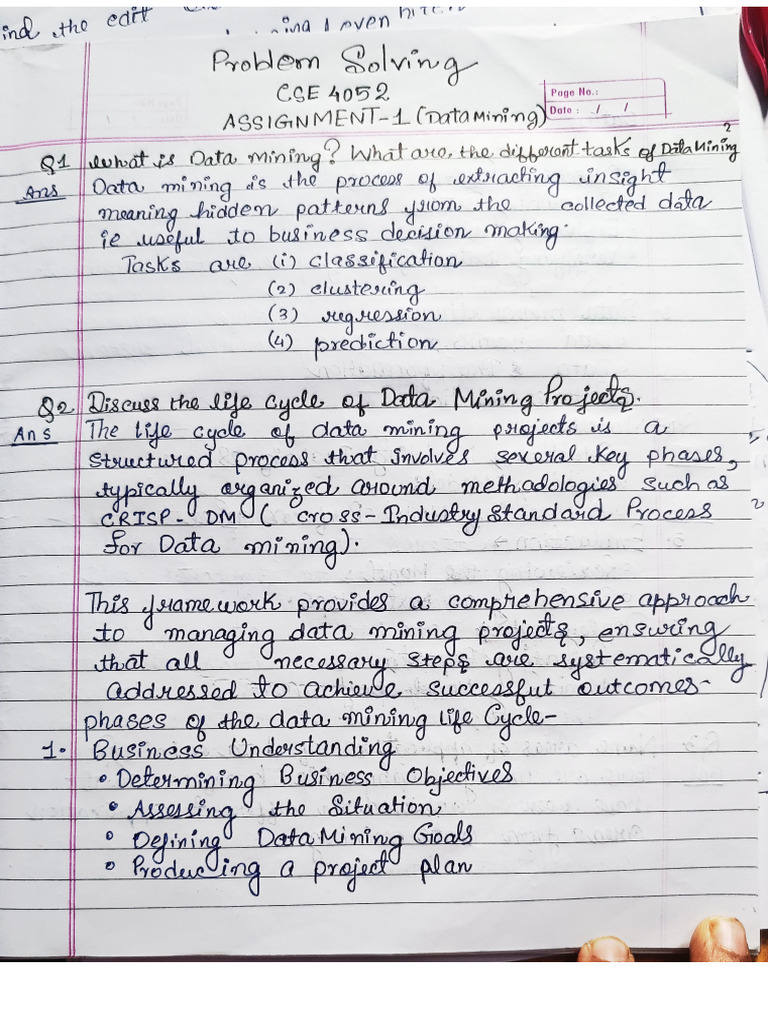 ind the edit
even
Problem Solving
CSE 4052
Page No.:
ASSIGNMENT-1 (Data Mining)
Date : / /
Q1 What is Data mining? What are the different tasks of Data Mining?
Ans Data mining is the process of extracting insight
meaning hidden patterns from the collected data
ie useful to business decision making.
Tasks are (i) classification
(2) clustering
(3) regression
(4) prediction
Q2 Discuss the life cycle of Data Mining Projects.
Ans The life cycle of data mining projects is a
structured process that involves several key phases,
typically organized around methodologies such as
CRISP-DM ( Cross-Industry Standard Process
for Data mining).
This framework provides a comprehensive approach
to managing data mining projects, ensuring
that all necessary steps are systematically
addressed to achieve successful outcomes-
phases of the data mining life Cycle-
1. Business Understanding
• Determining Business Objectives
• Assessing the Situation
• Defining Data Mining Goals
• Producing a project plan